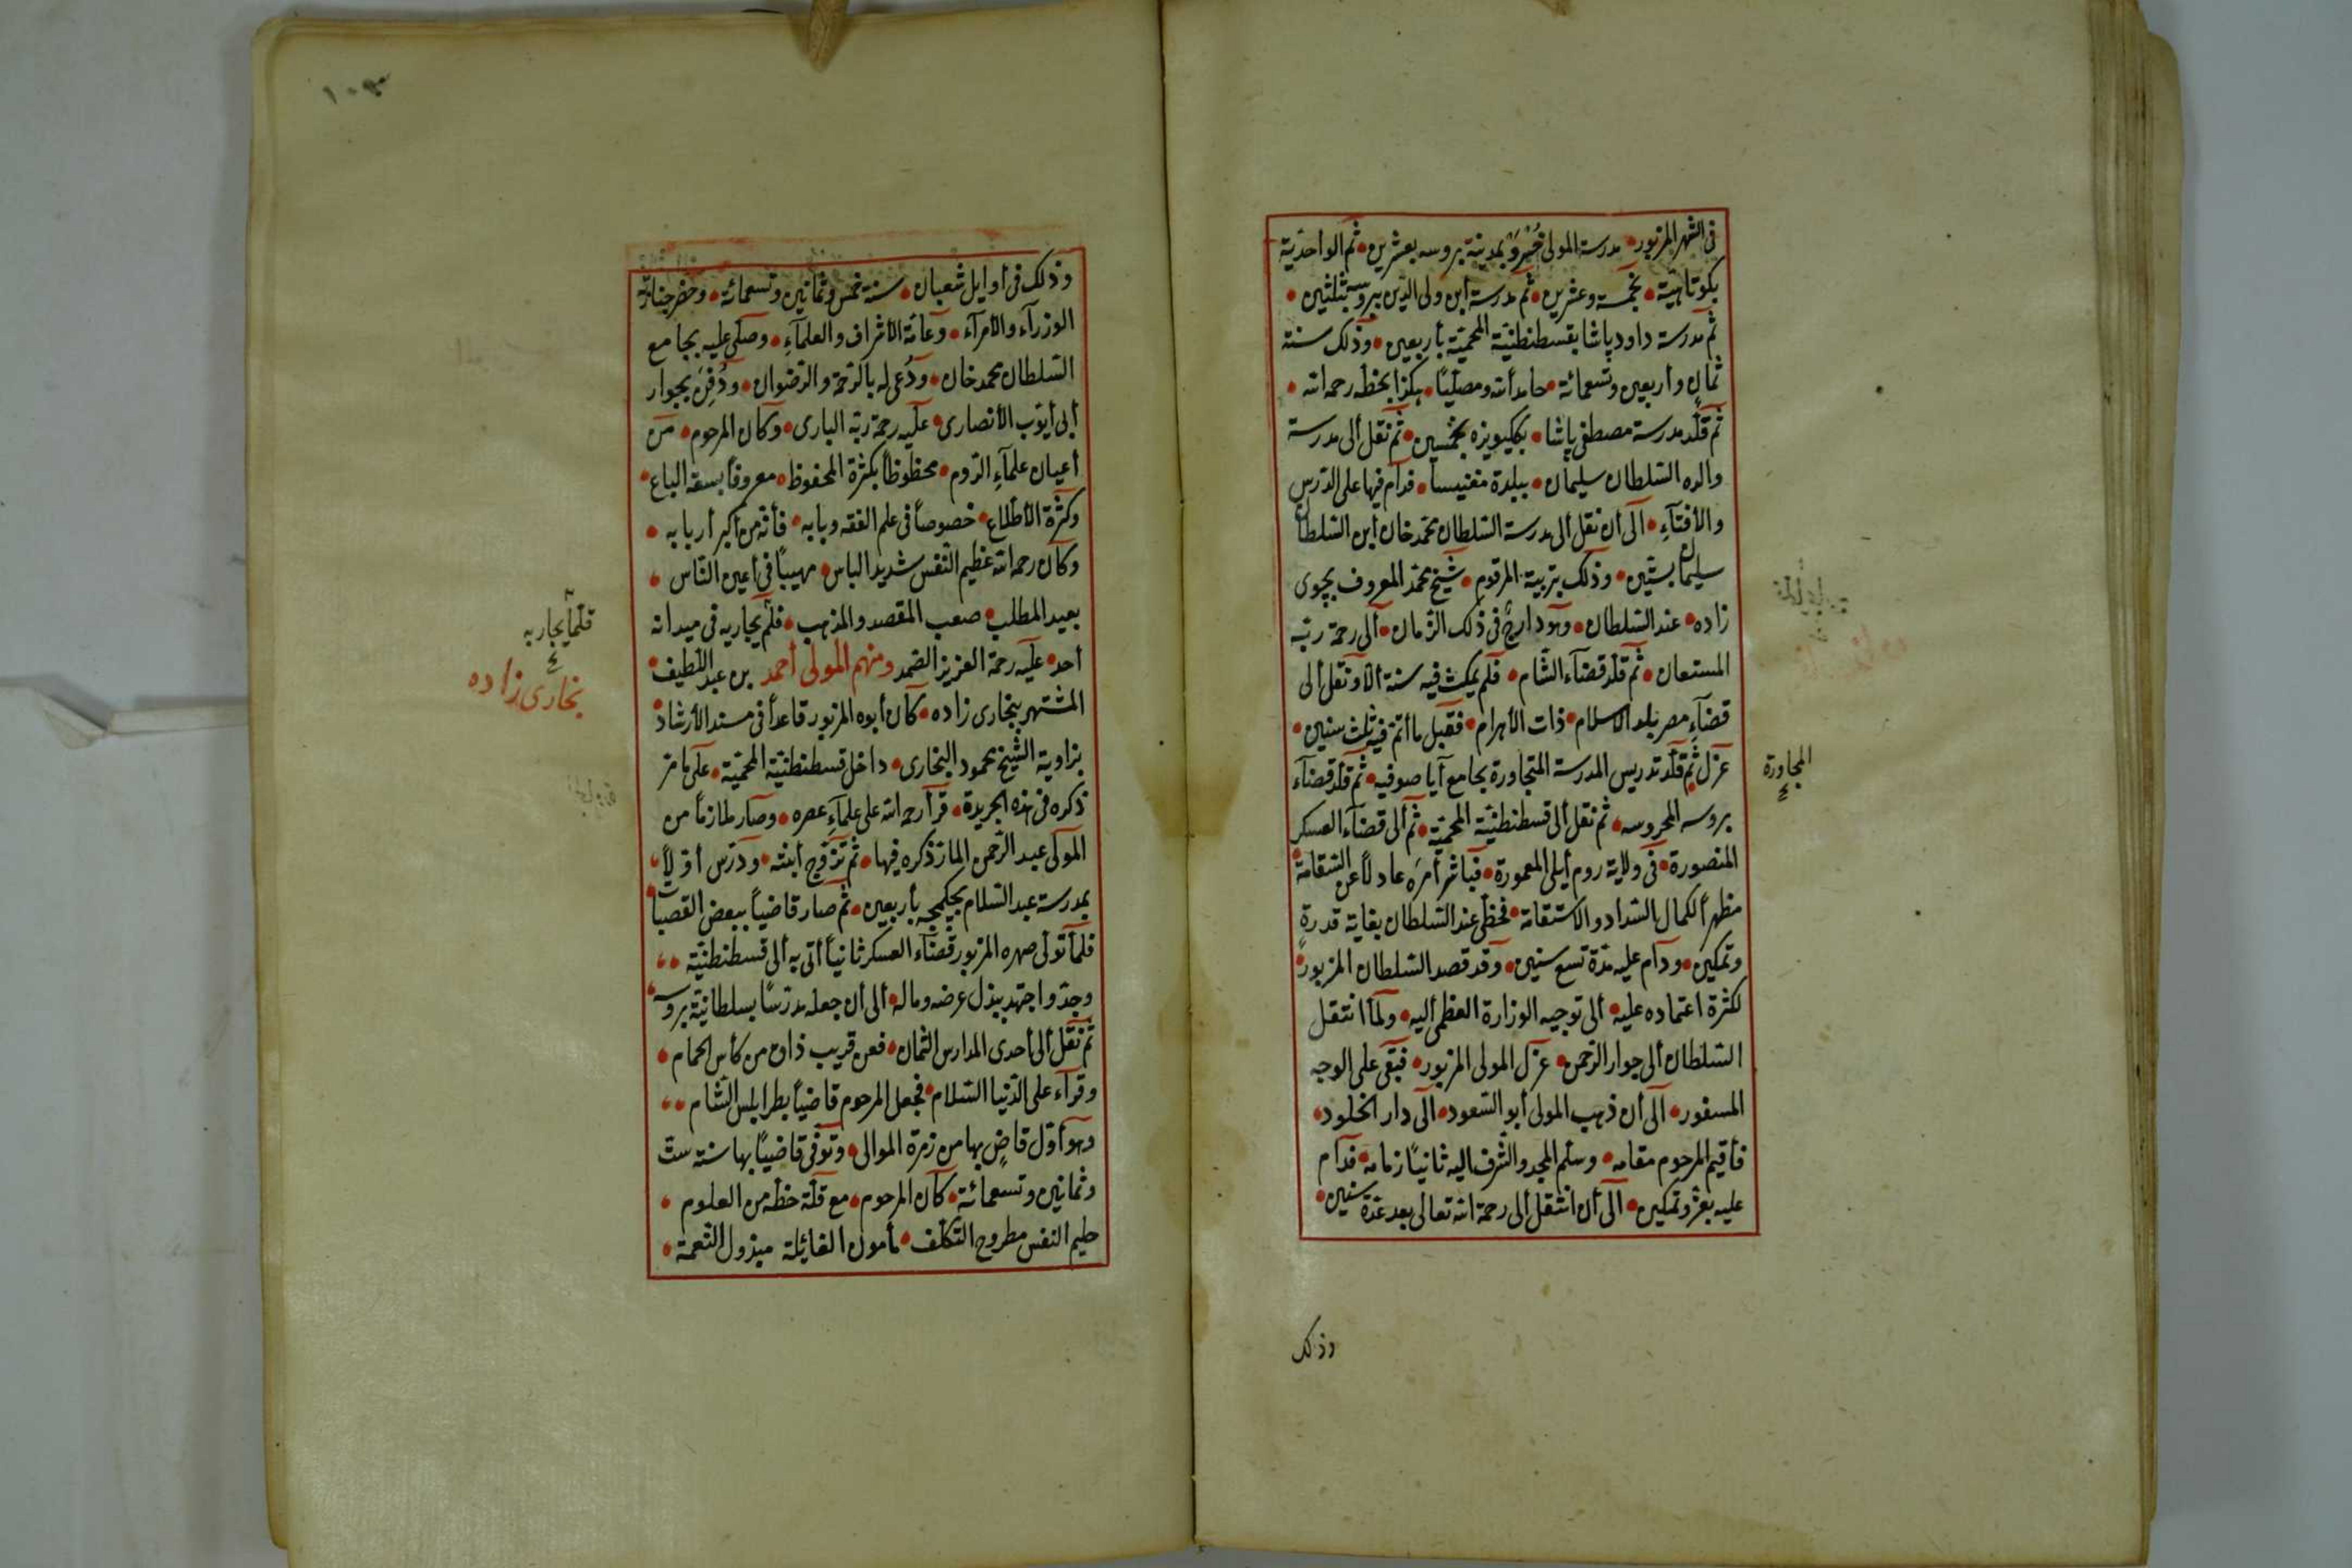 فى الشهر المزبور مدرسة المولى خسرو بمدينة بروسه بعشرين ثم الواحدية
بكوتاهية بخمسة وعشرين ثم مدرسة ابن ولى الدين ببروسه بثلثين
ثم مدرسة داود پاشا بقسطنطنية المحمية بأربعين وذلك سنة
ثمان وأربعين وتسعمائة حامداً لله ومصلياً هكذا بخطه رحمه الله
ثم قلد مدرسة مصطفى پاشا بككيويزه بخمسين ثم نقل ألى مدرسة
والده السلطان سليمان ببلدة مغنيسا فدام فيها على الدرس
والأفتآء ألى أن نقل ألى مدرسة السلطان محمد خان أبن السلطان
سليمان بستين وذلك بتربية المرقوم شيخ محمد المعروف بچوى
زاده عند السلطان وهو دارج فى ذلك الزمان ألى رحمة ربه
المستعان ثم قلد قضآء الشام فلم يمكث فيه سنة ألا ونقل ألى
قضآء مصر بلد الاسلام ذات الأهرام فقبل ما أتم فيه ثلث سنين
عزل ثم قلد تدريس المدرسة المتجاورة بجامع آيا صوفيه ثم قلد قضآء
بروسه المحروسه ثم نقل ألى قسطنطنية المحمية ثم ألى قضآء العسكر
المنصورة فى ولاية روم أيلى المعمورة فباشر أمره عادلاً عن السقامة
مظهراً لكمال السداد والاستقامة فحظى عند السلطان بغاية قدرة
وتمكين ودام عليه مدة تسع سنين وقد قصد السلطان المزبور
لكثرة اعتماده عليه ألى توجيه الوزارة العظمى أليه ولما انتقل
السلطان ألى جوار الرحمن عزل المولى المزبور فبقى على الوجه
المسفور ألى أن ذهب المولى أبو السعود ألى دار الخلود
فأقيم المرحوم مقامه وسلم المجد والشرف اليه ثانياً زمامه فدام
عليه بعز وتمكين ألى أن انتقل ألى رحمة الله تعالى بعد عدة سنين
المجاورة
وذلك
وذلك فى أوايل شعبان سنة خمس وثمانين وتسعمائة وحضر جنازته
الوزرآء والأمرآء وعامة الأشراف والعلمآء وصلى عليه بجامع
السلطان محمد خان ودعى له بالرحمة والرضوان ودفن بجوار
أبى أيوب الأنصارى عليه رحمة ربه البارى وكان المرحوم من
أعيان علمآء الروم محظوظاً بكثرة المحفوظ معروفاً بسعة الباع
وكثرة الأطلاع خصوصاً فى علم الفقه وبابه فأنه من أكبر أربابه
وكان رحمه الله عظيم النفس شديد الباس مهيباً فى أعين الناس
بعيد المطلب صعب المقصد والمذهب فلم يجاريه فى ميدانه
أحد عليه رحمة العزيز الصمد ومنهم المولى أحمد بن عبد اللطيف
المشتهر ببخارى زاده كان أبوه المزبور قاعداً فى مسند الأرشاد
بزاوية الشيخ محمود البخارى داخل قسطنطنية المحمية على ما مر
ذكره فى هذه الجريدة قرأ رحمه الله على علمآء عصره وصار ملازماً من
المولى عبد الرحمن المار ذكره فيها ثم تزوج أبنته ودرس أولاً
بمدرسة عبد السلام بچكمجه بأربعين ثم صار قاضياً ببعض القصبات
فلما تولى صهره المزبور قضآء العسكر ثانياً أتى به ألى قسطنطنية
وجد واجتهد ببذل عرضه وماله ألى أن جعله مدرساً بسلطانية بروسه
ثم نقل ألى أحدى المدارس الثمان فعن قريب ذاق من كأس الحمام
وقرآء على الدنيا السلام فجعل المرحوم قاضياً بطرابلس الشام
وهو أول قاض بها من زمرة الموالى وتوفى قاضياً بها سنة ست
وثمانين وتسعمائة كان المرحوم مع قلة حظه من العلوم
حليم النفس مطروح التكلف مأمون الغائلة مبذول النعمة
فلما يجاريه
بخارى زاده